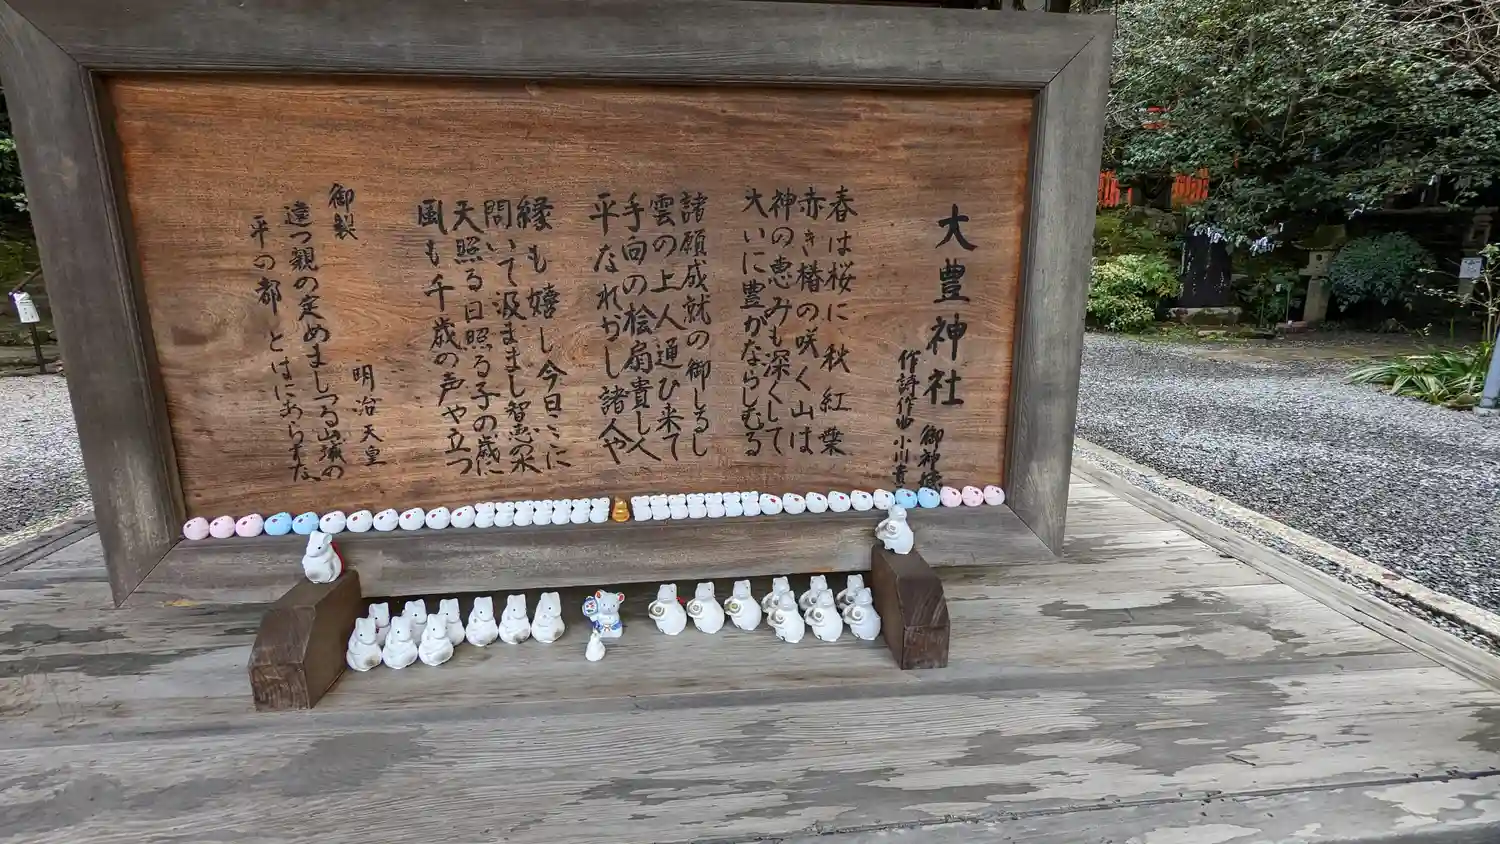 大豊神社
御神
作詩作曲 小川
春は桜に 秋 紅葉
赤き椿の咲く山は
神の恵みも深くして
大いに豊かならしむる
諸願成就の御しるし
雲の上人通ひ来て
手向の桧扇貴しく
平なれかし諸人や
縁も嬉し今日ここに
問いて汲ままし智恵の水
天照る日照る子の歳に
風も千歳の声や立つ
御製
明治天皇
遠つ親の定めましつる山城の
平の都 とはにあらすな